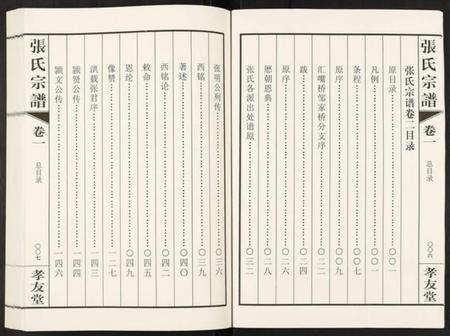 張氏宗譜
卷一
总目录
〇〇六
孝友堂
张氏宗谱卷二目录
原目录 〇〇一
凡例 〇〇一
条程 〇〇七
原序 〇〇九
汇嘴桥邹家桥分支序 〇二二
跋 〇二四
原序 〇二八
历朝恩典 〇三二
张氏各派出处谱原 〇三二
張氏宗譜
卷一
总目录
〇〇七
孝友堂
张明公列传 〇三六
西铭 〇三九
著述 〇四〇
西铭论 〇四二
敕命 〇四五
恩纶 〇四九
像赞 一二七
洪载张君序 一四三
颖贤公传 一四四
颖文公传 一四六